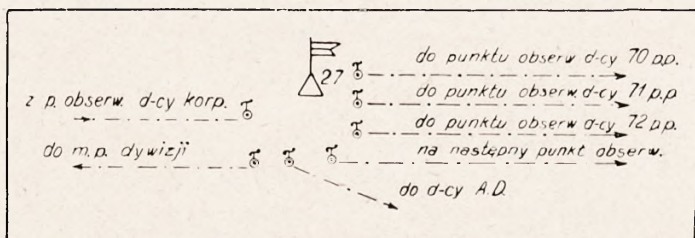 27
do punktu obserw d-cy 70 p.p.
do punktu obserw. d-cy 71 p.p
do punktu obserw d-cy 72 p.p.
na następny punkt obserw.
z p. obserw. d-cy korp.
do m.p. dywizji
do d-cy A.D.